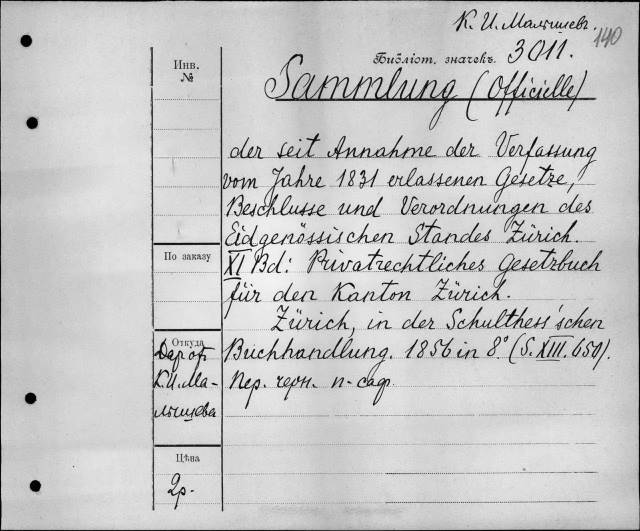 К. И. Малышевъ.
140
Инв.
№
Библіот. значекъ. 3011.
Sammlung (Officielle)
der seit Annahme der Verfassung
vom Jahre 1831 erlassenen Gesetze,
Beschlusse und Verordnungen des
Eidgenössischen Standes Zürich.
По заказу
XI Bd: Privatrechtliches Gesetzbuch
für den Kanton Zürich.
Zürich, in der Schulthess'schen
Откуда
Даръ отъ
К. И. Ма-
лышева
Buchhandlung. 1856 in 8° (S. XIII. 650).
Пер. черн. п-саф.
Цѣна
2р.